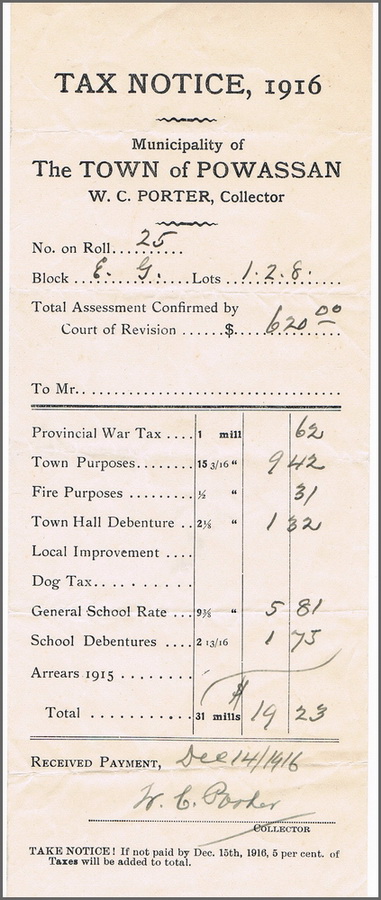 TAX NOTICE, 1916
Municipality of
The TOWN of POWASSAN
W. C. PORTER, Collector
No. on Roll....25........
Block ..E. G..... Lots ..1.2.8......
Total Assessment Confirmed by
Court of Revision ......$. 620.00
To Mr.......................................
Provincial War Tax .... 1 mill 62
Town Purposes........ 15 3/16 " 9 42
Fire Purposes ........ ½ " 31
Town Hall Debenture .. 2⅛ " 1 32
Local Improvement ....
Dog Tax.............
General School Rate ... 9⅜ " 5 81
School Debentures .... 2 13/16 1 75
Arrears 1915 ........
Total ............ 31 mills $ 19 23
RECEIVED PAYMENT, Dec 14/1916
W. C. Porter
COLLECTOR
TAKE NOTICE! If not paid by Dec. 15th, 1916, 5 per cent. of
Taxes will be added to total.